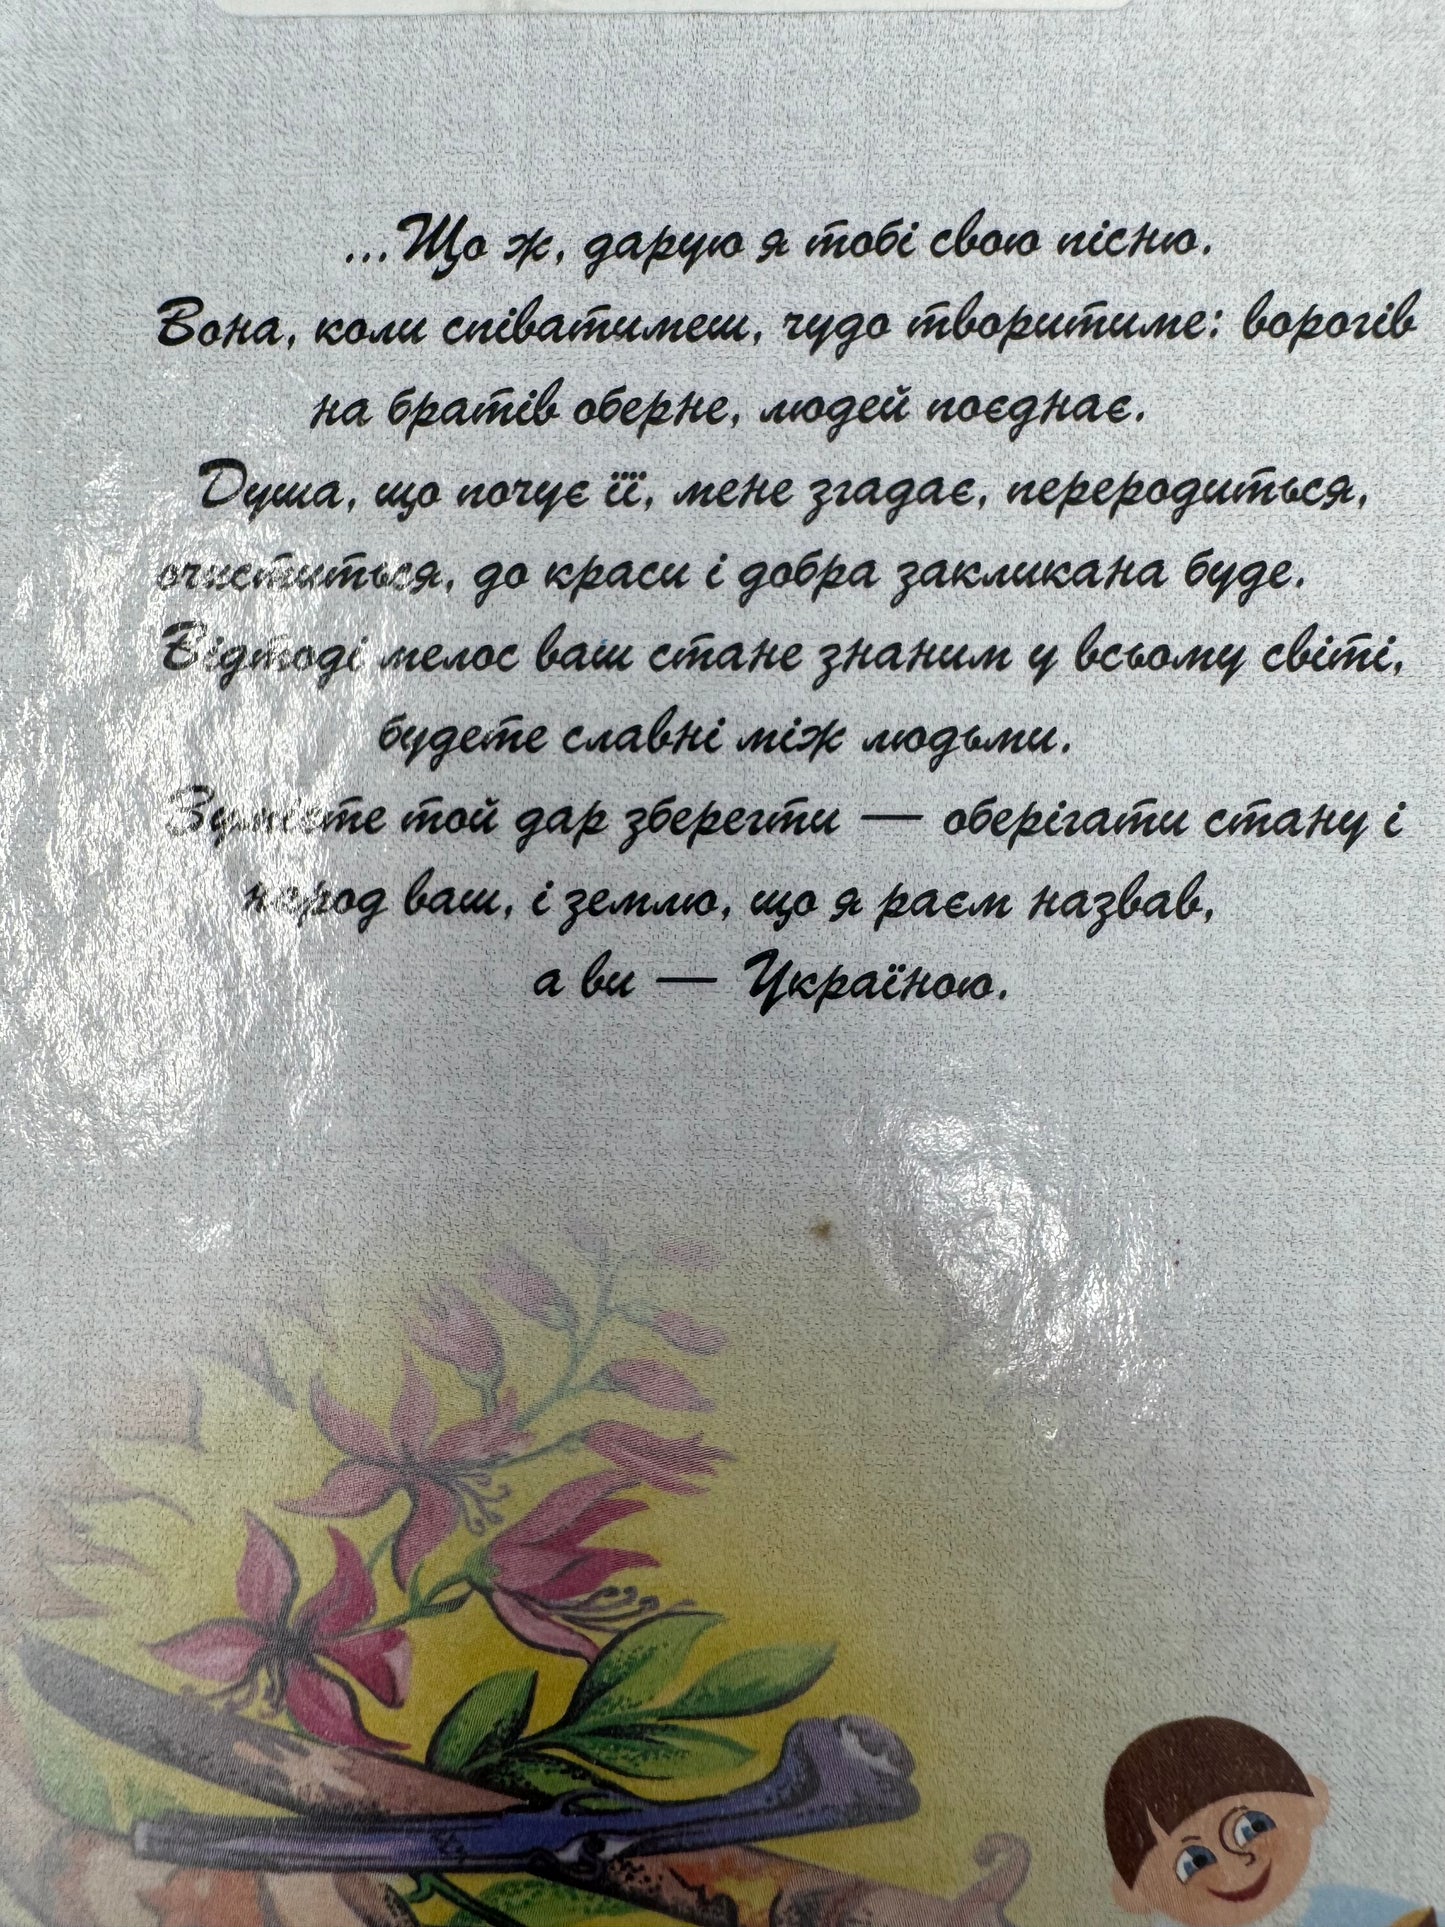 ...Що ж, дарую я тобі свою пісню.
Вона, коли співатимеш, чудо творитиме: ворогів
на братів оберне, людей поєднає.
Душа, що почує її, мене згадає, переродиться,
очиститься, до краси і добра закликана буде.
Відтоді мелос ваш стане знаним у всьому світі,
будете славні між людьми.
Зумієте той дар зберегти — оберігати стану і
народ ваш, і землю, що я раєм назвав,
а ви — Україною.